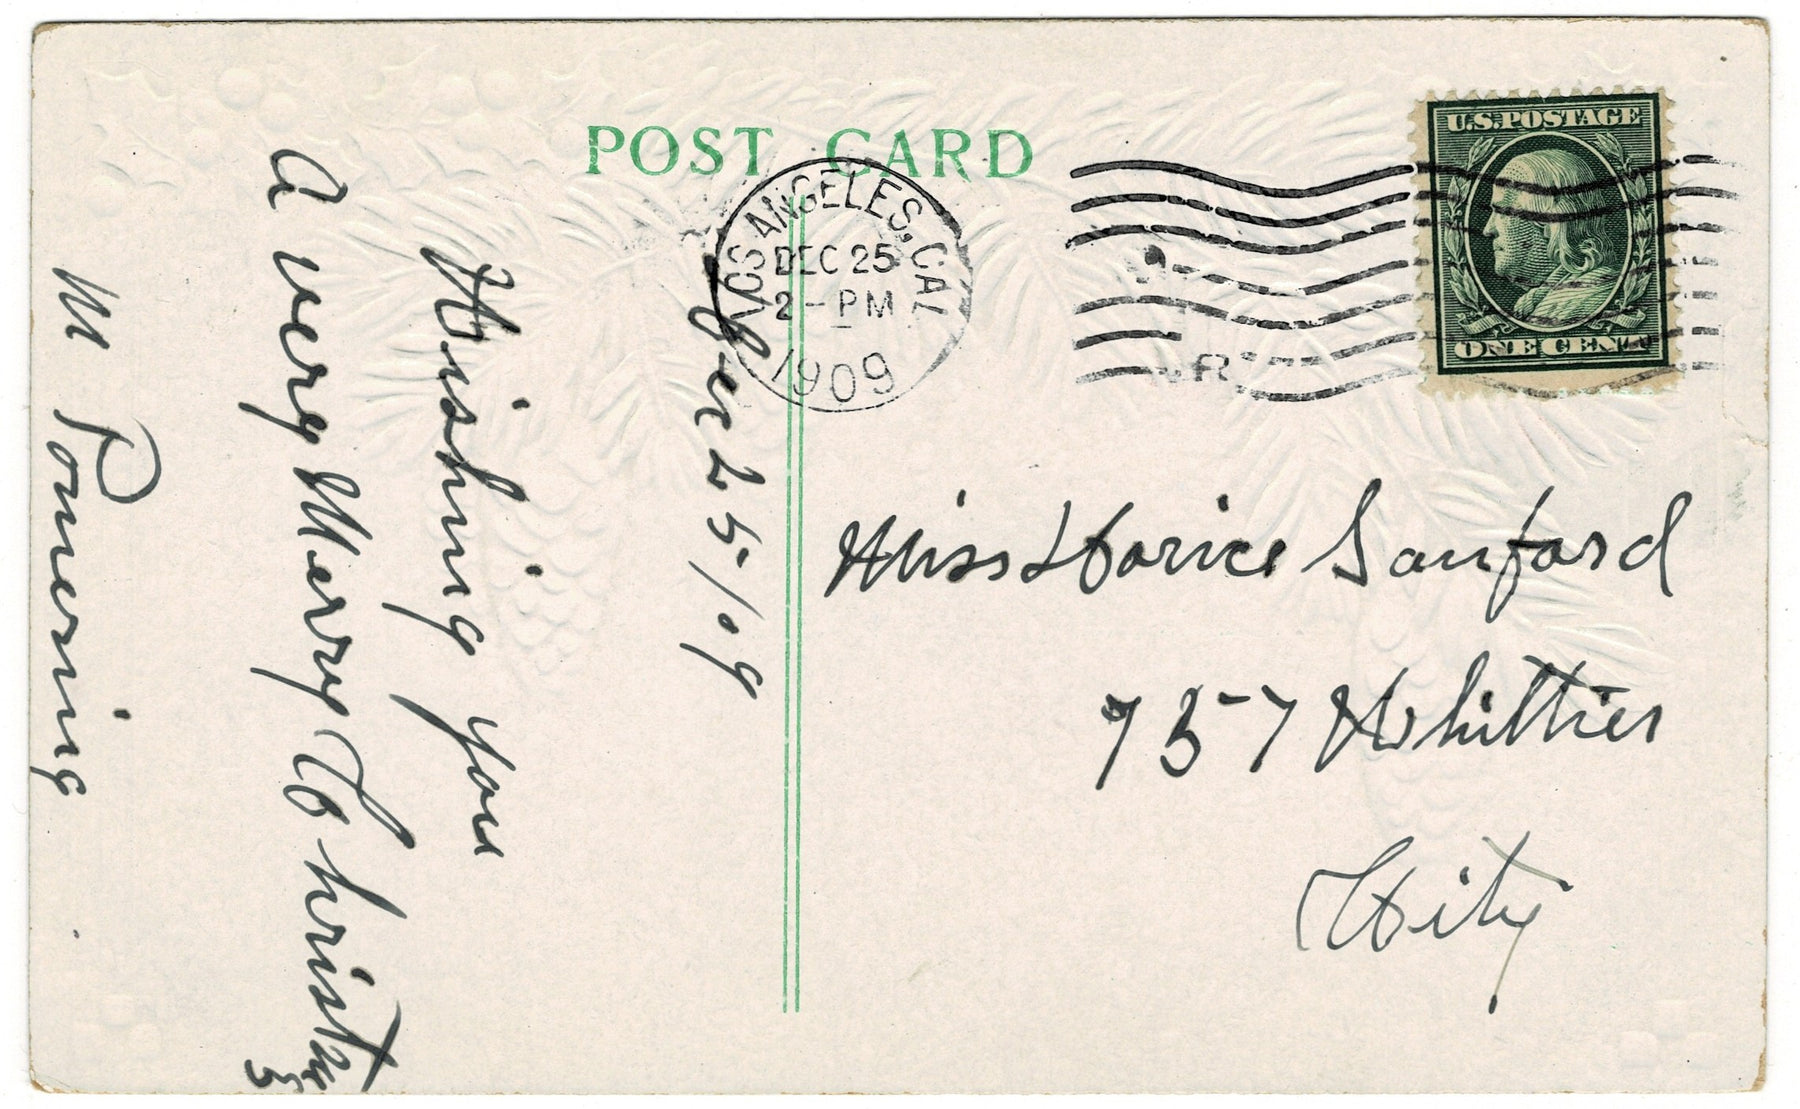 POST CARD
LOS ANGELES, CAL
DEC 25
2 - PM
1909
U.S. POSTAGE
ONE CENT
Dec 25/09
Wishing you
A very Merry Christmas
M Pomering
Miss Sanford
757 Whittier
City